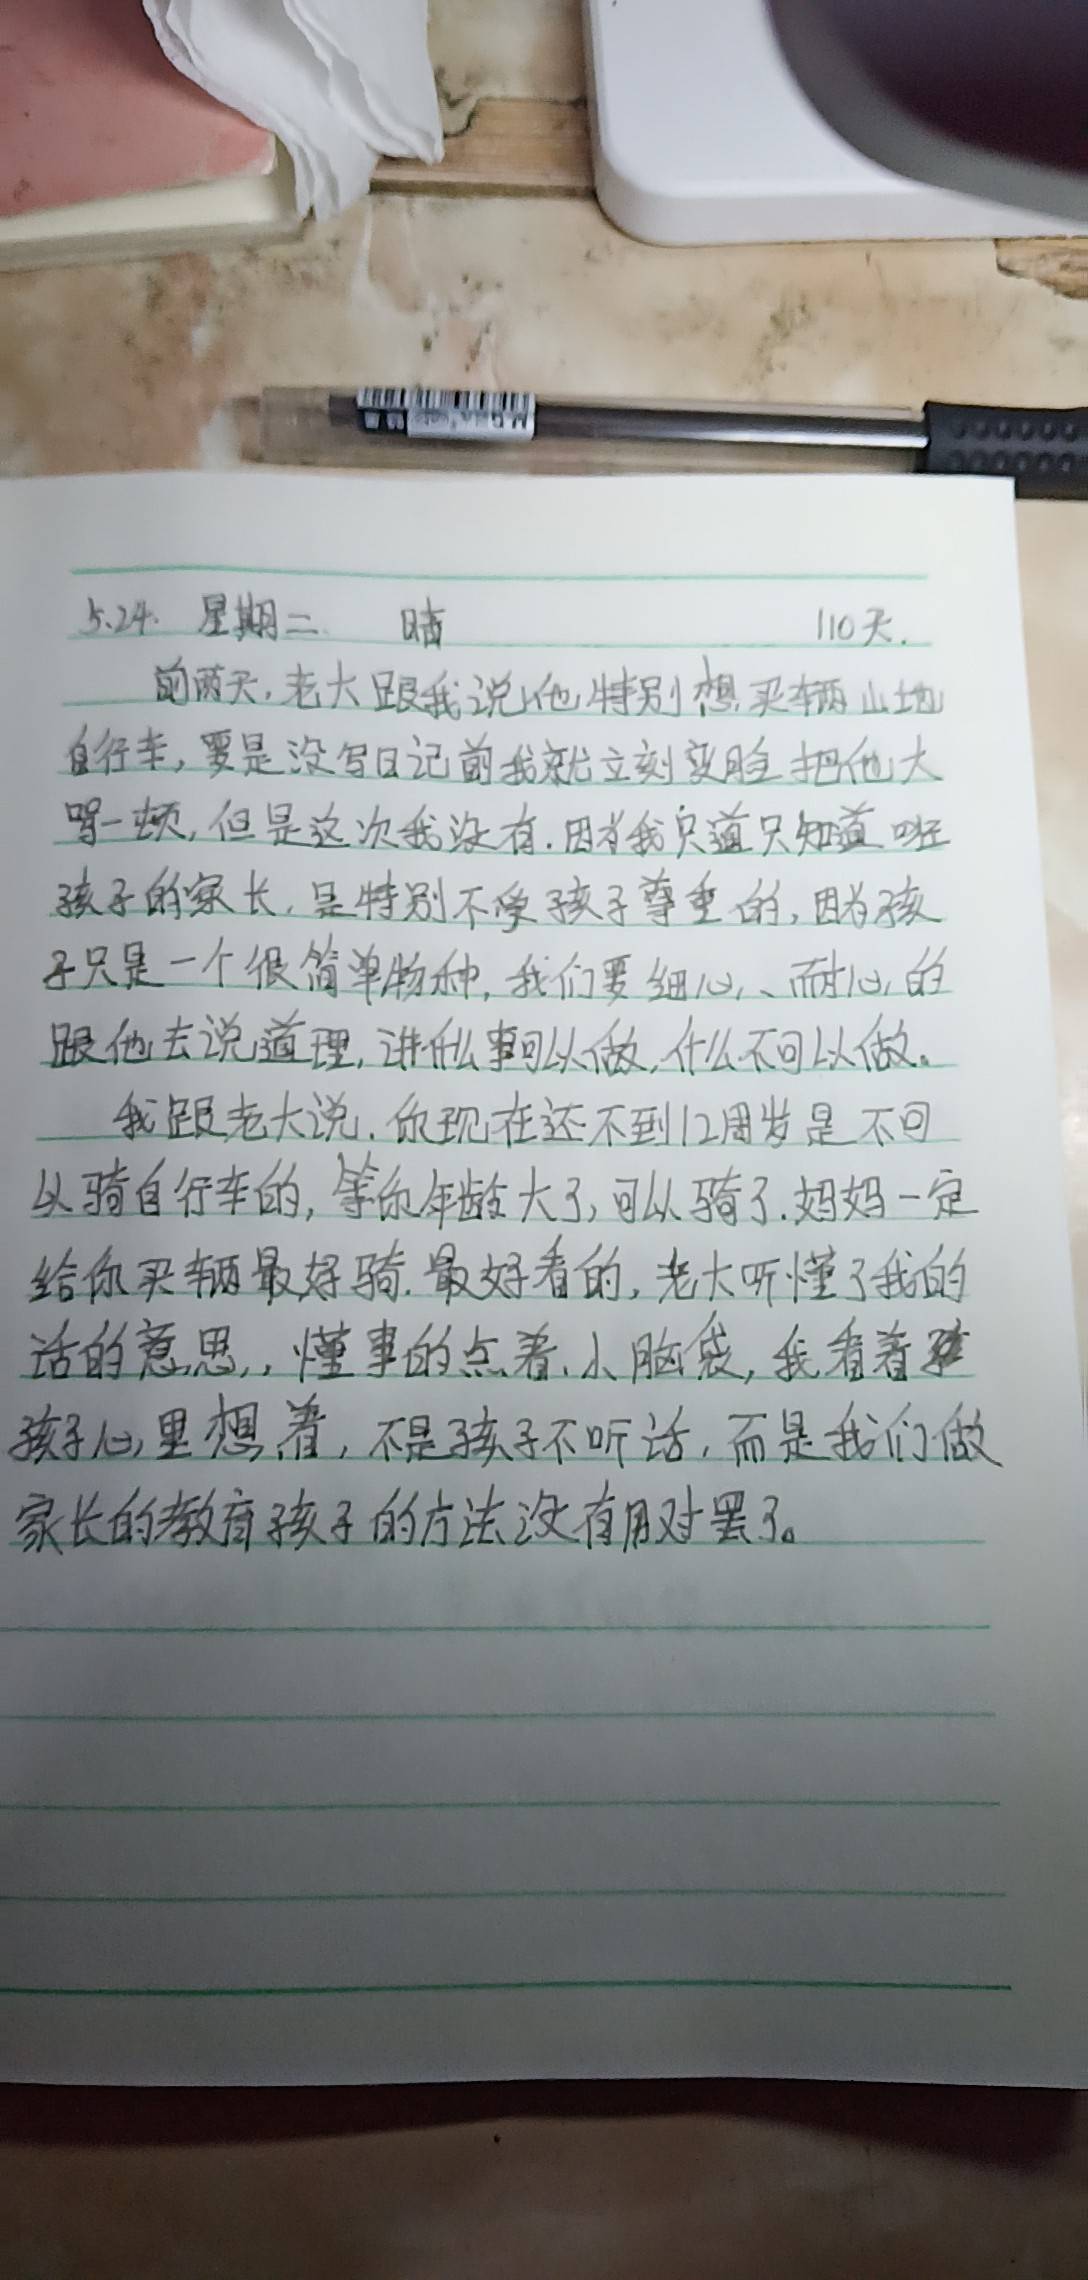 5.24. 星期二 晴 110天.
前两天,老大跟我说他特别想买辆山地
自行车,要是没写日记前我就立刻变脸把他大
骂一顿,但是这次我没有.因为我只道只知道
孩子的家长,是特别不受孩子尊重的,因为孩
子只是一个很简单物种,我们要细心、耐心的
跟他去说道理,讲什么事可以做,什么不可以做。
我跟老大说.你现在还不到12周岁是不可
以骑自行车的,等你年龄大了,可以骑了.妈妈一定
给你买辆最好骑.最好看的,老大听懂了我的
话的意思,,懂事的点着小脑袋,我看着
孩子心里想着,不是孩子不听话,而是我们做
家长的教育孩子的方法没有用对罢了。